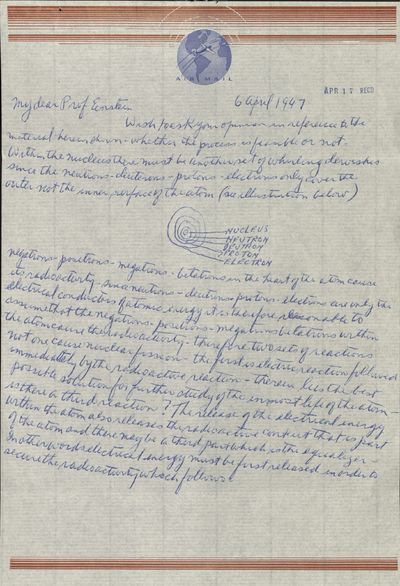 AIR MAIL
APR 17 RECD
My dear Prof Einstein 6 April 1947
Wish to ask your opinion in reference to the
material herein drawn - whether the process is possible or not.
Within the nucleus there must be another set of whirling dervishes
since the neutrons - deuterons - protons - electrons only cover the
outer not the inner, surface of the atom (see illustration below)
NUCLEUS
NEUTRON
DEUTHON
PROTON
ELECTRON
negatrons - positrons - megatrons - betatrons in the heart of the atom cause
its radioactivity. Since neutrons - deutrons - protons - electrons are only the
electrical conductors of atomic energy it is therefore reasonable to
assume that the negatrons - positrons - megatrons betatrons within
the atom cause the radioactivity - therefore two sets of reactions
not one cause nuclear fission - the first is electric reaction followed
immediately by the radioactive reaction - therein lies the best
possible solution for further study of the inmost life of the atom -
is there a third reaction? The release of the electrical energy
within the atom also releases the radioactive content that is part
of the atom and there may be a third part which is the equalizer
In other words electrical energy must be first released in order to
secure the radioactivity which follows